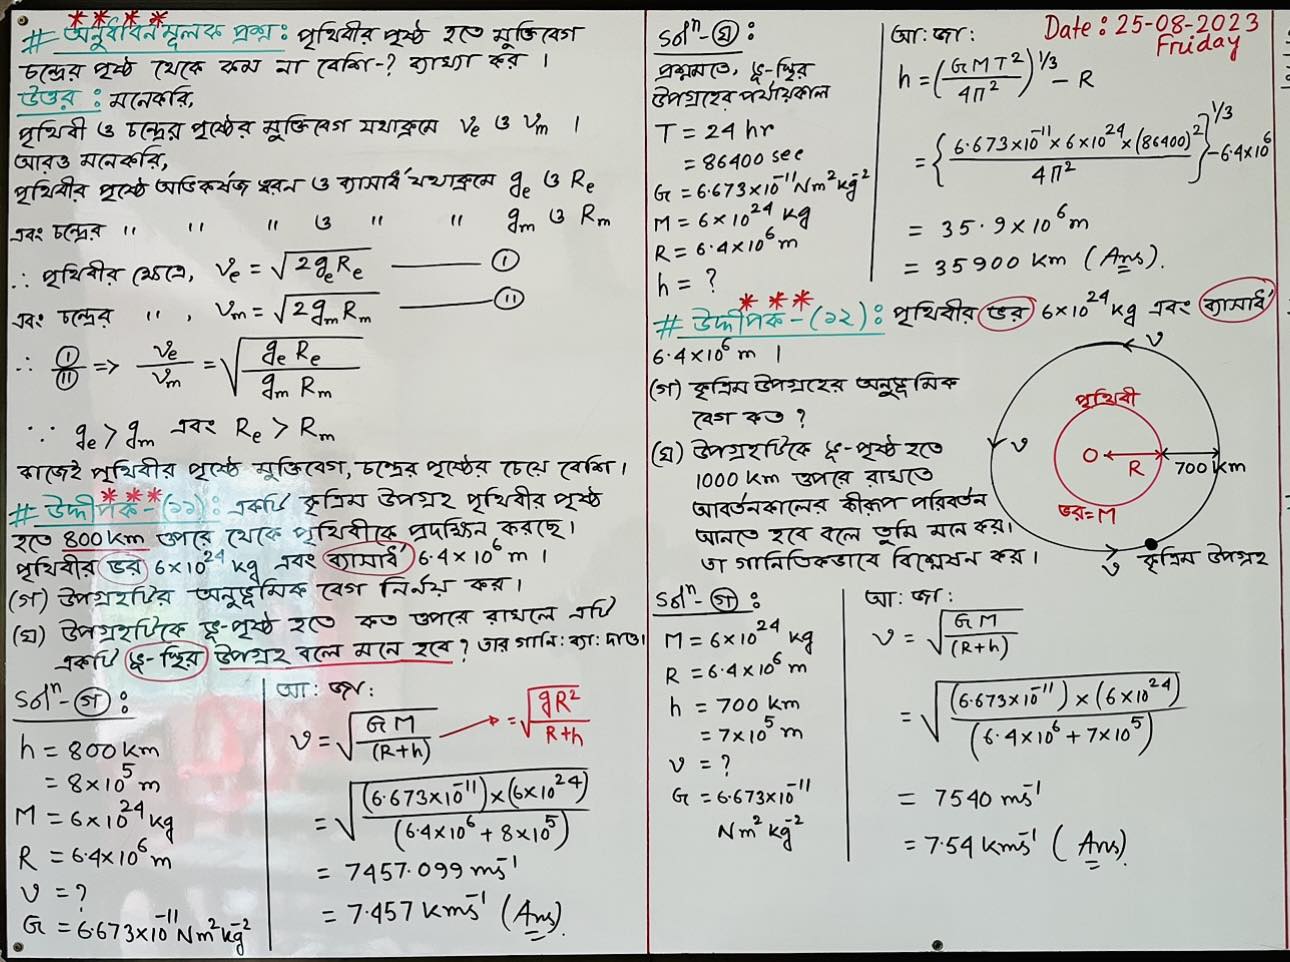 # অনুধাবনমূলক প্রশ্ন : পৃথিবীর পৃষ্ঠ হতে মুক্তিবেগ
চন্দ্রের পৃষ্ঠ থেকে কম না বেশি-? ব্যাখ্যা কর ।
উত্তর : মনেকরি,
পৃথিবী ও চন্দ্রের পৃষ্ঠের মুক্তিবেগ যথাক্রমে vₑ ও vₘ ।
আরও মনেকরি,
পৃথিবীর পৃষ্ঠে অভিকর্ষজ ত্বরন ও ব্যাসার্ধ যথাক্রমে gₑ ও Rₑ
এবং চন্দ্রের " " " ও " " gₘ ও Rₘ
∴ পৃথিবীর ক্ষেত্রে, vₑ = √(2gₑRₑ) —— (I)
এবং চন্দ্রের " , vₘ = √(2gₘRₘ) —— (II)
∴ (I)/(II) => vₑ/vₘ = √(gₑRₑ/gₘRₘ)
∵ gₑ > gₘ এবং Rₑ > Rₘ
কাজেই পৃথিবীর পৃষ্ঠে মুক্তিবেগ, চন্দ্রের পৃষ্ঠের চেয়ে বেশি ।
# উদ্দীপক-(১১) : একটি কৃত্রিম উপগ্রহ পৃথিবীর পৃষ্ঠ
হতে 800 km উপরে থেকে পৃথিবীকে প্রদক্ষিন করছে।
পৃথিবীর ভর 6×10²⁴ kg এবং ব্যাসার্ধ 6.4×10⁶ m ।
(গ) উপগ্রহটির অনুভূমিক বেগ নির্নয় কর ।
(ঘ) উপগ্রহটিকে ভূ-পৃষ্ঠ হতে কত উপরে রাখলে এটি
একটি ভূ-স্থির উপগ্রহ বলে মনে হবে ? তার গানি: ব্যা: দাও।
Solⁿ-(গ) :
h = 800 km
= 8×10⁵ m
M = 6×10²⁴ kg
R = 6.4×10⁶ m
v = ?
G = 6.673×10⁻¹¹ Nm²kg⁻²
আ: জা:
v = √(GM/(R+h)) → = √(gR²/R+h)
= √((6.673×10⁻¹¹)×(6×10²⁴)/(6.4×10⁶ + 8×10⁵))
= 7457.099 ms⁻¹
= 7.457 kms⁻¹ (Ans).
Date : 25-08-2023
Friday
Solⁿ-(ঘ) :
প্রশ্নমতে, ভূ-স্থির
উপগ্রহের পর্যায়কাল
T = 24 hr
= 86400 sec
G = 6.673×10⁻¹¹ Nm²kg⁻²
M = 6×10²⁴ kg
R = 6.4×10⁶ m
h = ?
আ: জা:
h = (GMT²/4π²)^1/3 - R
= {6.673×10⁻¹¹×6×10²⁴×(86400)²/4π²}^1/3 - 6.4×10⁶
= 35.9×10⁶ m
= 35900 km (Ans).
# উদ্দীপক-(১২) : পৃথিবীর ভর 6×10²⁴ kg এবং ব্যাসার্ধ
6.4×10⁶ m ।
(গ) কৃত্রিম উপগ্রহের অনুভূমিক
বেগ কত ?
(ঘ) উপগ্রহটিকে ভূ-পৃষ্ঠ হতে
1000 km উপরে রাখতে
আবর্তনকালের কীরূপ পরিবর্তন
আনতে হবে বলে তুমি মনে কর।
তা গানিতিকভাবে বিশ্লেষন কর ।
v
পৃথিবী
v
O
R
700 km
ভর=M
v
কৃত্রিম উপগ্রহ
Solⁿ-(গ) :
M = 6×10²⁴ kg
R = 6.4×10⁶ m
h = 700 km
= 7×10⁵ m
v = ?
G = 6.673×10⁻¹¹
Nm²kg⁻²
আ: জা:
v = √(GM/(R+h))
= √((6.673×10⁻¹¹)×(6×10²⁴)/(6.4×10⁶ + 7×10⁵))
= 7540 ms⁻¹
= 7.54 kms⁻¹ (Ans).